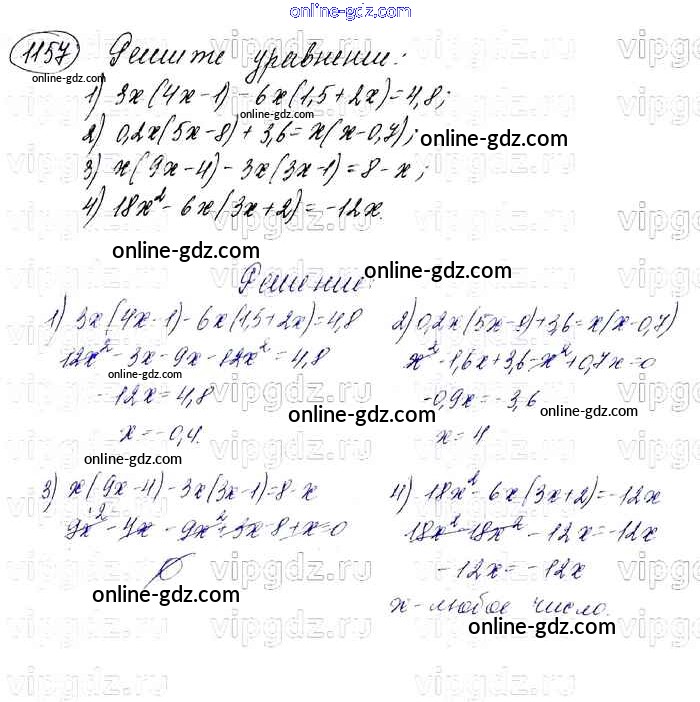 online-gdz.com
1157 Решите уравнение:
1) 3x(4x-1)-6x(1,5+2x)=4,8;
2) 0,2x(5x-8)+3,6=x(x-0,7);
3) x(9x-4)-3x(3x-1)=8-x;
4) 18x²-6x(3x+2)=-12x.
Решение:
1) 3x(4x-1)-6x(1,5+2x)=4,8
12x²-3x-9x-12x²=4,8
-12x=4,8
x=-0,4.
2) 0,2x(5x-8)+3,6=x(x-0,7)
x²-1,6x+3,6-x²+0,7x=0
-0,9x=-3,6
x=4
3) x(9x-4)-3x(3x-1)=8-x
9x²-4x-9x²+3x-8+x=0
∅
4) 18x²-6x(3x+2)=-12x
18x²-18x²-12x=-12x
-12x=-12x
x-любое число.